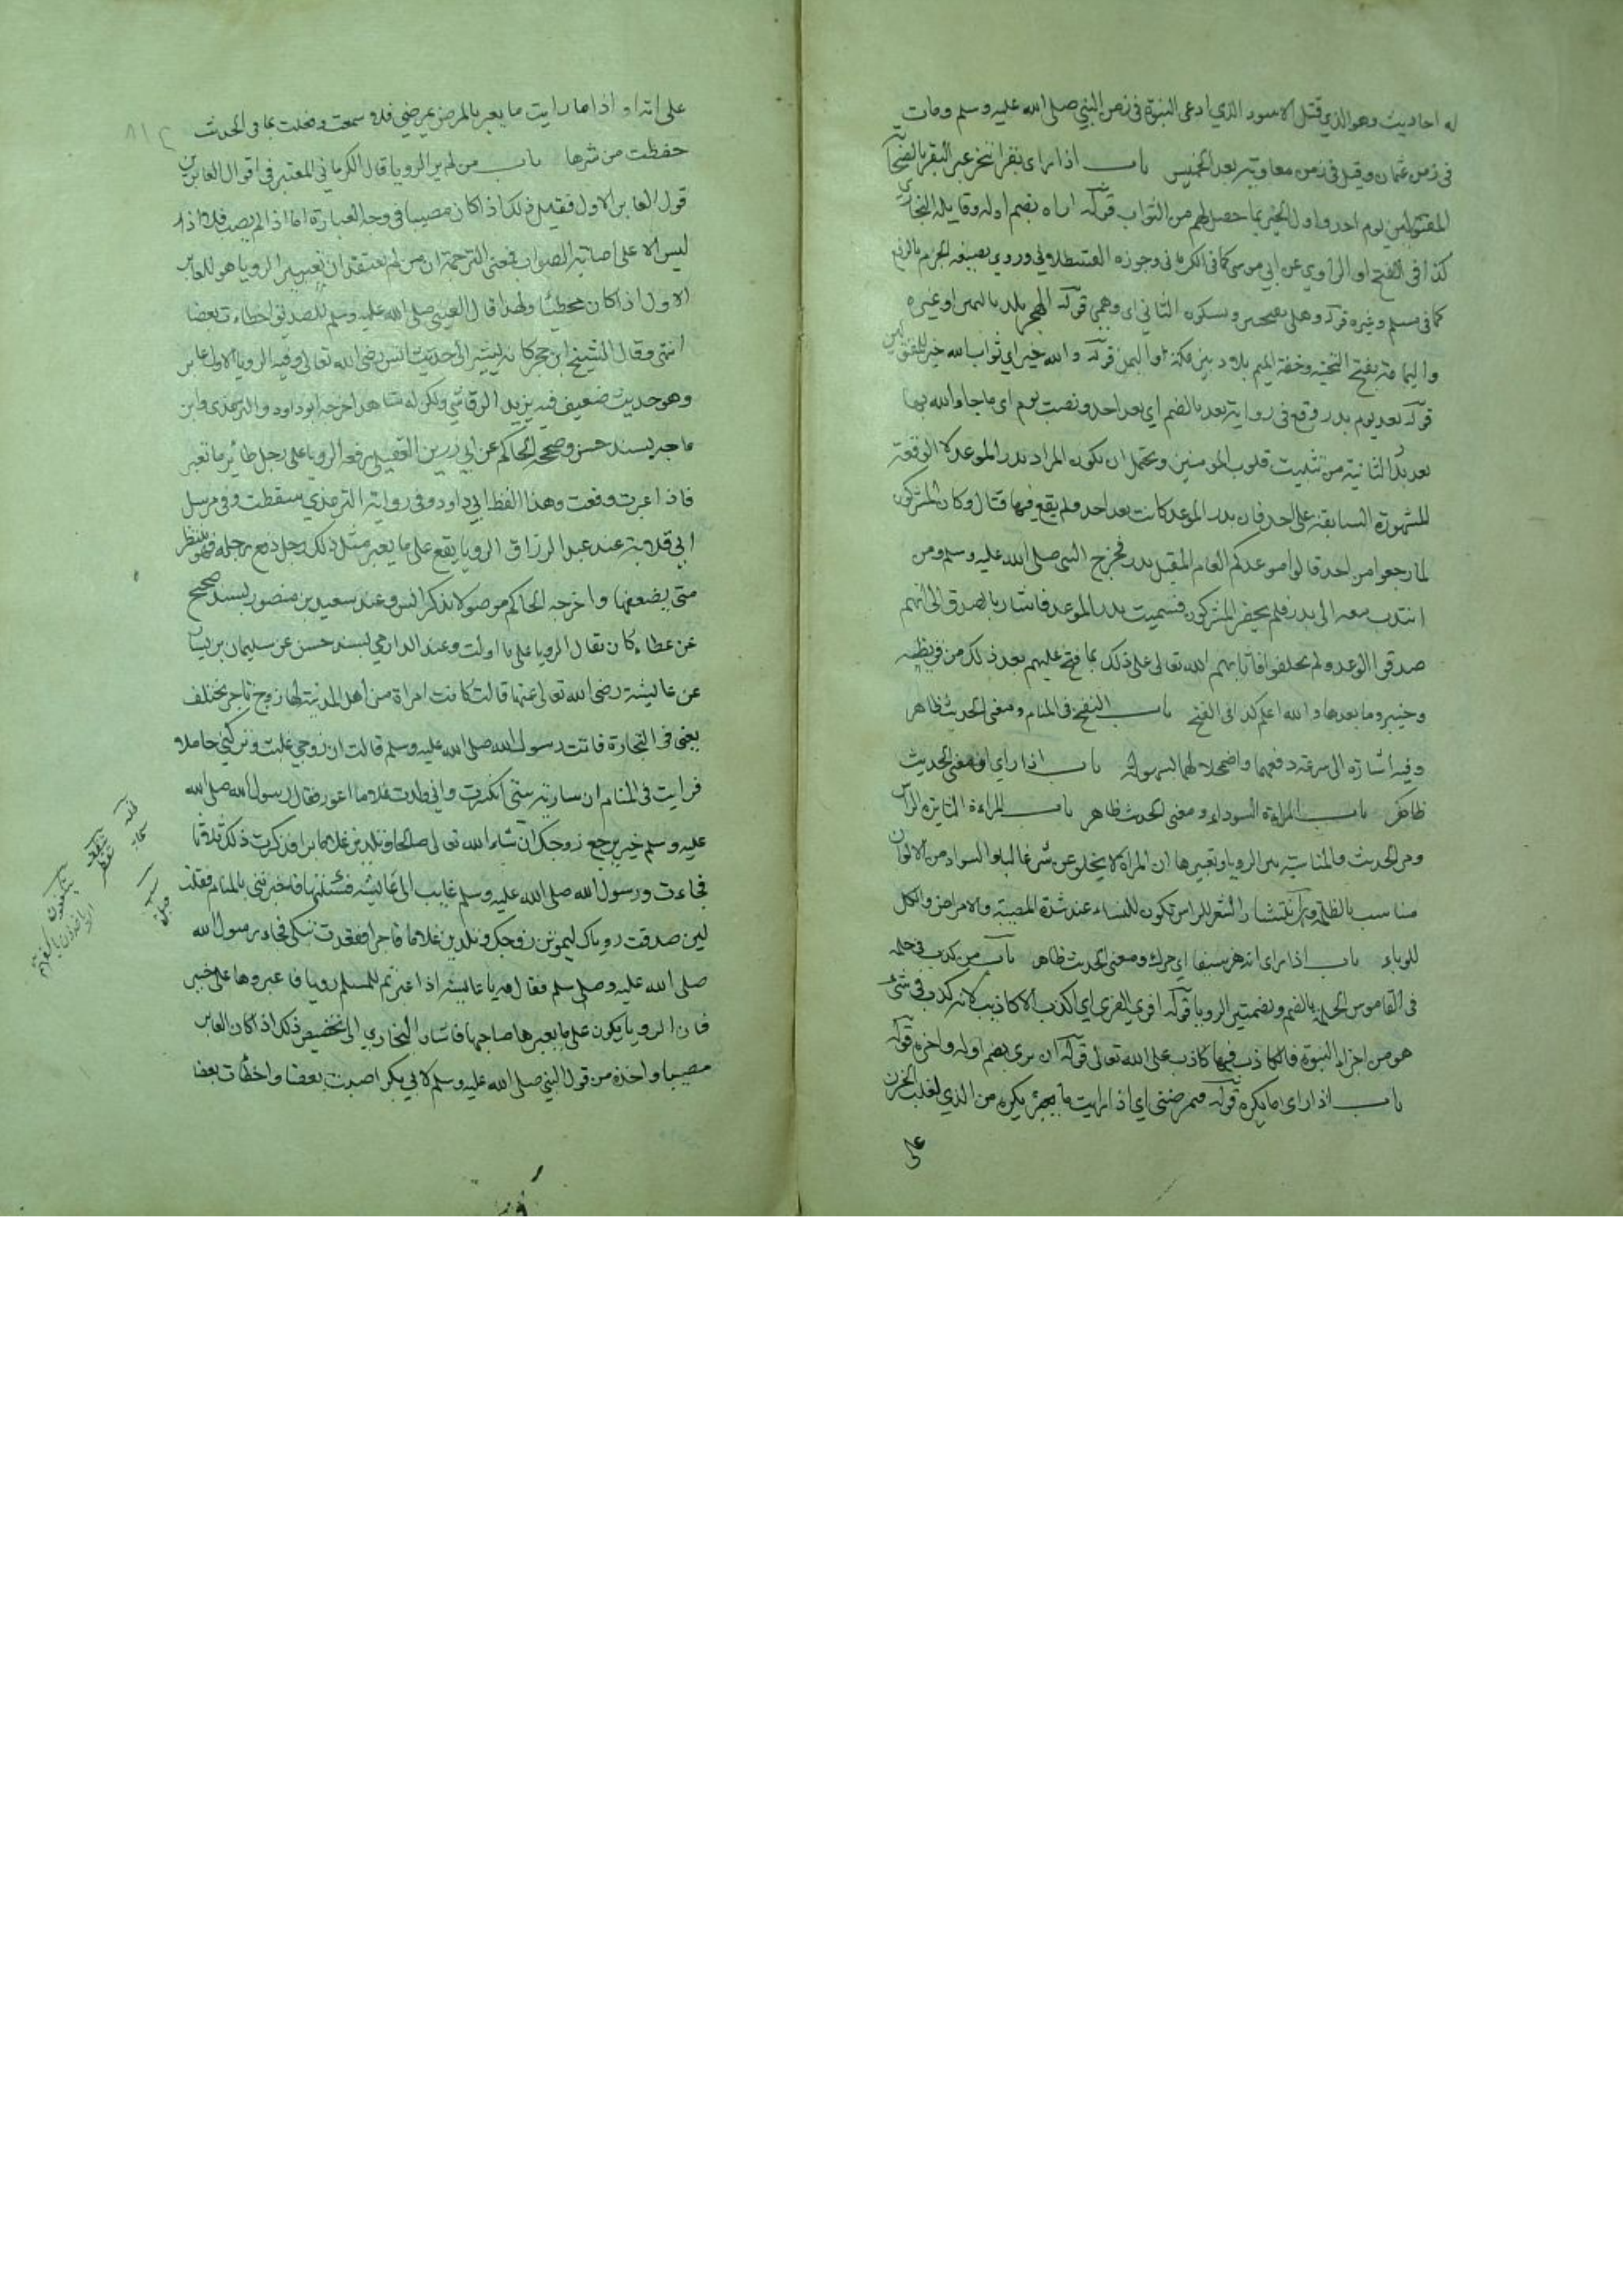 له احاديث وهو الذي قتل الاسود الذي ادعى النبوة في زمن النبي صلى الله عليه وسلم ومات
في زمن عثمان وقيل في زمن معاوية بعد الخمسين باب اذا راى بقرا تنحر عبر البقر بالضحايا
المقتولين يوم احد واول الخير بما حصل لهم من الثواب قوله اراه بضم اوله وقايله البخاري
كذا في الفتح او الراوي عن ابي موسى كما في الكرماني وجوزه القسطلاني وروي بصيغة الجزم بالرفع
كما في مسلم وغيره قوله وهلي بفتحتين وبسكون الثاني اي وهمي قوله الهجر بلد باليمن او غيره
واليمامة بفتح التحتية وخفة الميم بلاد بين مكة واليمن قوله والله خير اي ثواب الله خير للمقتولين
قوله بعد يوم بدر وقع في رواية بعد بالضم اي بعد احد ونصب يوم اي ما جاء الله به
بعد بدر الثانية من تثبيت قلوب المومنين ويحتمل ان يكون المراد بدر الموعد لا الوقعة
المشهورة السابقة على احد فان بدر الموعد كانت بعد احد ولم يقع فيها قتال وكان المشركون
لما رجعوا من احد قالوا موعدكم العام المقبل بدر فخرج النبي صلى الله عليه وسلم ومن
انتدب معه الى بدر فلم يحضر المشركون فسميت بدر الموعد فاشار بالصدق الى انهم
صدقوا الوعد ولم يخلفوا فاثابهم الله تعالى على ذلك بما فتح عليهم بعد ذلك من قريظة
وخيبر وما بعدها والله اعلم كذا في الفتح باب النفخ في المنام ومعنى الحديث ظاهر
وفيه اشارة الى سرعة دفعهما واضمحلالهما بسهولة باب اذا راى ومعنى الحديث
ظاهر باب المراة السوداء ومعنى الحديث ظاهر باب المراة الثايرة الراس
ومر الحديث والمناسبة بين الرويا وتعبيرها ان المراة لا يخلو عن شر غالبا والسواد من الالوان
مناسب بالظلمة وانتشار الشعر للراس تكون للنساء عند شدة المصيبة والامراض والكل
للوباء باب اذا راى انه هز سيفا اي حركه ومعنى الحديث ظاهر باب من كذب في حلمه
في القاموس الحلم بالضم وبضمتين الرويا قوله افرى الفرى اي اكذب الاكاذيب لانه كذب في شئ
هو من اجزاء النبوة فالكاذب فيها كاذب على الله تعالى قوله ان يرى بضم اوله واخره قوله
باب اذا راى ما يكره قوله فتمرضني اي اذا رايت ما يكره من الذي لغلب الحزن
على
على انه او اذا ما رايت ما يعبر بالمرض يمرضني فلما سمعت وفعلت بما في الحديث
حفظت من شرها باب من لم ير الرويا قال الكرماني المعتبر في اقوال العابرين
قول العابر الاول فقيل ذلك اذا كان مصيبا في وجه العبارة اما اذا لم يصب فلا اذ
ليس الا على اصابة الصواب فمعنى الترجمة ان من لم يعتقد ان تعبير الرويا هو للعابر
الاول اذا كان مخطئا ولهذا قال النبي صلى الله عليه وسلم للصديق اخطات بعضا
انتهى وقال الشيخ ابن حجر كانه يشير الى حديث انس رضي الله تعالى وفيه الرويا لاول عابر
وهو حديث ضعيف فيه يزيد الرقاشي ولكن له شاهد اخرجه ابو داود والترمذي وابن
ماجه بسند حسن وصححه الحاكم عن ابي رزين العقيلي رفعه الرويا على رجل طائر ما لم تعبر
فاذا عبرت وقعت وهذا لفظ ابي داود وفي رواية الترمذي سقطت وفي مرسل
ابي قلابة عند عبد الرزاق الرويا يقع على ما يعبر مثل ذلك رجل رفع رجله فهو ينتظر
متى يضعها واخرجه الحاكم موصولا بذكر انس وعند سعيد بن منصور بسند صحيح
عن عطاء كان يقال الرويا على ما اولت وعند الدارمي بسند حسن عن سليمان بن يسار
عن عايشة رضي الله تعالى عنها قالت كانت امراة من اهل المدينة لها زوج تاجر يختلف
يعني في التجارة فاتت رسول الله صلى الله عليه وسلم قالت ان زوجي غايب وتركني حاملا
فرايت في المنام ان سارية بيتي انكسرت واني ولدت غلاما اعور فقال رسول الله صلى الله
عليه وسلم خير يرجع زوجك ان شاء الله تعالى صالحا وتلدين غلاما برا فذكرت ذلك ثلاثا
فجاءت ورسول الله صلى الله عليه وسلم غايب اي عايشة فسئلتها فاخبرتني بالمنام فقلت
لئن صدقت روياك ليموتن زوجك وتلدين غلاما فاجرا فقعدت تبكي فجاء رسول الله
صلى الله عليه وسلم فقال مه يا عايشة اذا عبرتم للمسلم رويا فاعبروها على خير
فان الرويا يكون على ما يعبرها صاحبها فاشار البخاري الى تخصيص ذلك اذا كان العابر
مصيبا واخذه من قول النبي صلى الله عليه وسلم لابي بكر اصبت بعضا واخطات بعضا